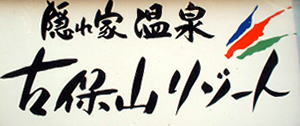 隠れ家温泉
古保山リゾート